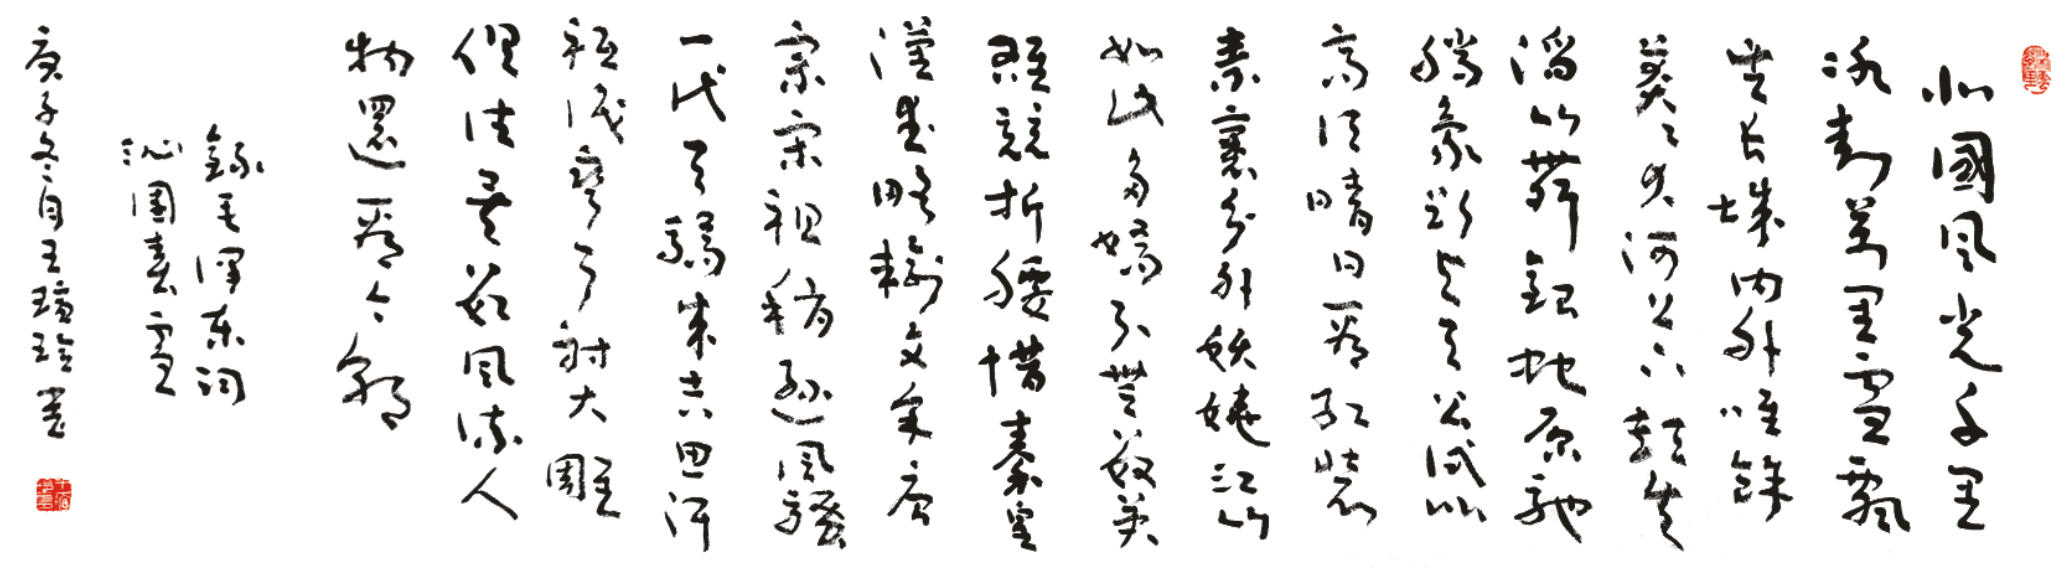 北國風光千里
冰封萬里雪飄
望長城內外唯餘
莽〻大河上下頓失
滔〻山舞銀蛇原馳
蠟象欲與天公試比
高須晴日看紅裝
素裹分外妖嬈江山
如此多嬌引無數英
雄競折腰惜秦皇
漢武略輸文采唐
宗宋祖稍遜風騷
一代天驕成吉思汗
祗識彎弓射大雕
俱往矣數風流人
物還看今朝
錄毛澤東詞
沁園春雪
庚子冬月王玲書